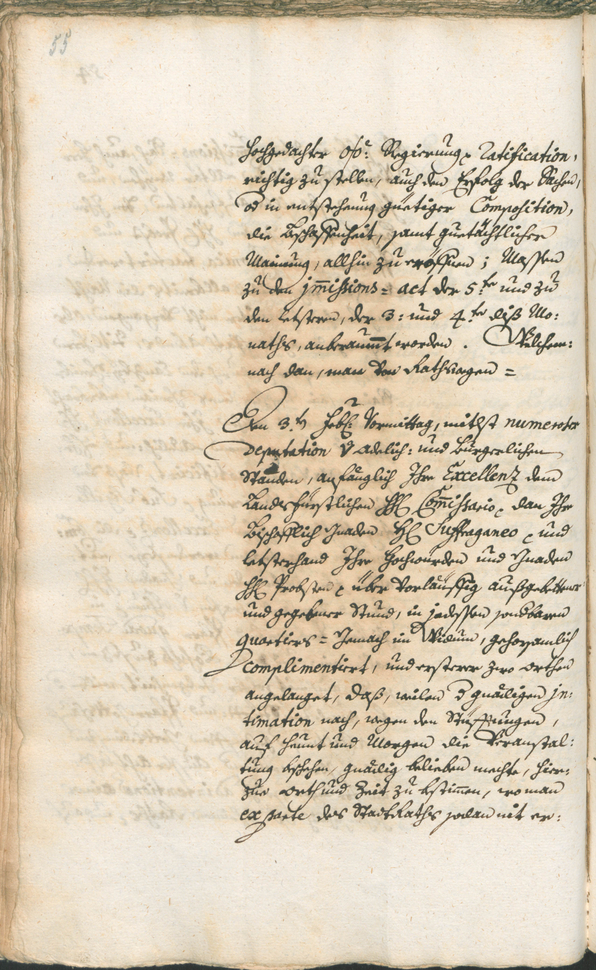 55
hochgedachter o/ö: Regierung, Ratification,
richtig zu stellen, auch den Erfolg der Sachen,
od in entstehung guetiger Composition,
die Beschaffenheit, samt guetächtlicher
Mainung, allhin zu eröffnen; Massen
zu den jmissions= act der 5.te und zu
den letsteren, der 3: und 4.te diß Mo:
naths, anberaumt worden. Welchem:
nach dan, man von Rathswegen =
Den 3.ten Febr: Vormittag, mitlst numeroser
Deputation v adelich: und Bürgerlichen
Ständen, anfänglich Ihro Excellenz dem
Landsfürstlichen HH Commissario, dan Ihr
Bischofflich Gnaden HH Suffraganeo, und
letsterhand Ihro Hochwürden und Gnaden
HH Probsten, über vorläuffig außgebettener
und gegebner Stund, in jedessen
quartiers = Gemach im Widum, gehorsamlich
complimentiert, und ersterer zwo orthen
angelanget, daß, weilen gnädigen jn:
timation nach, wegen den Stüfftungen,
auf heunt und Morgen die Veranstal:
tung bschehen, gnädig belieben mechte, hier:
zue orth und Zeit zu bstimen, wo man
ex parte des StattRaths sodan mit er: